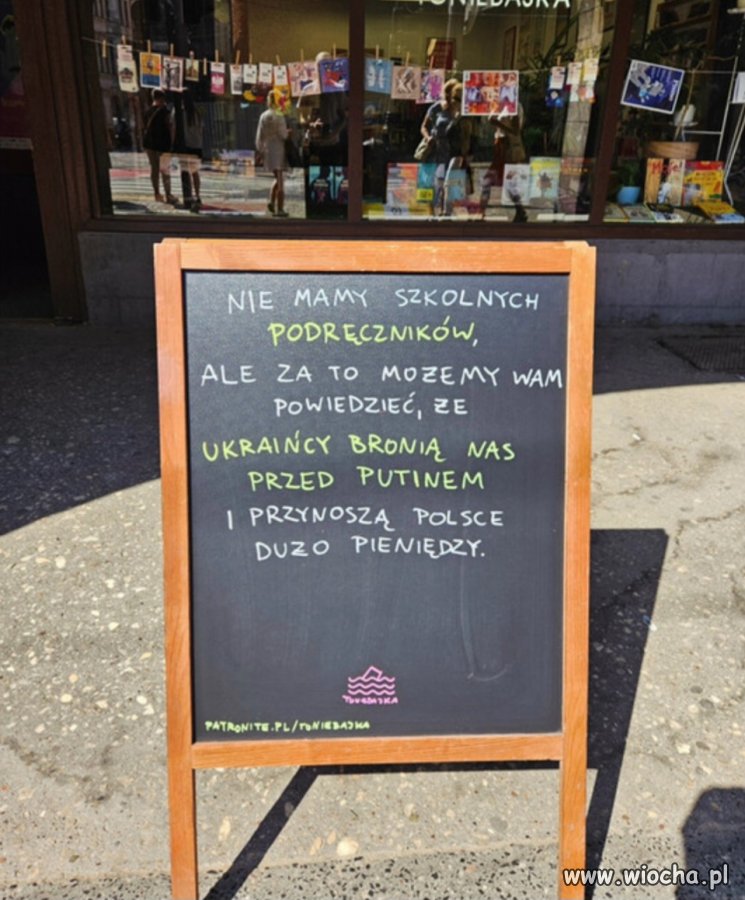 TONIEBAJKA
NIE MAMY SZKOLNYCH
PODRĘCZNIKÓW,
ALE ZA TO MOŻEMY WAM
POWIEDZIEĆ, ŻE
UKRAIŃCY BRONIĄ NAS
PRZED PUTINEM
I PRZYNOSZĄ POLSCE
DUŻO PIENIĘDZY.
TONIEBAJKA
PATRONITE.PL/TONIEBAJKA
www.wiocha.pl